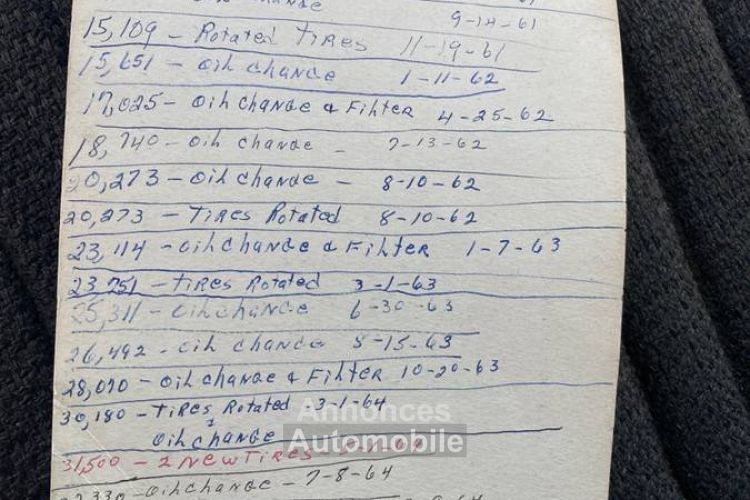 change
9-14-61
15,109 - Rotated Tires 11-19-61
15,651 - oil change 1-11-62
17,025 - oil change & Filter 4-25-62
18,740 - oil change - 7-13-62
20,273 - oil change - 8-10-62
20,273 - Tires Rotated 8-10-62
23,114 - oil change & Filter 1-7-63
23,751 - tires Rotated 3-1-63
25,311 - oil change 6-30-63
26,492 - oil change 8-15-63
28,070 - oil change & Filter 10-20-63
30,180 - Tires Rotated 3-1-64
& oil change
31,500 - 2 New Tires
330 - oil change - 7-8-64
Annonces
Automobile